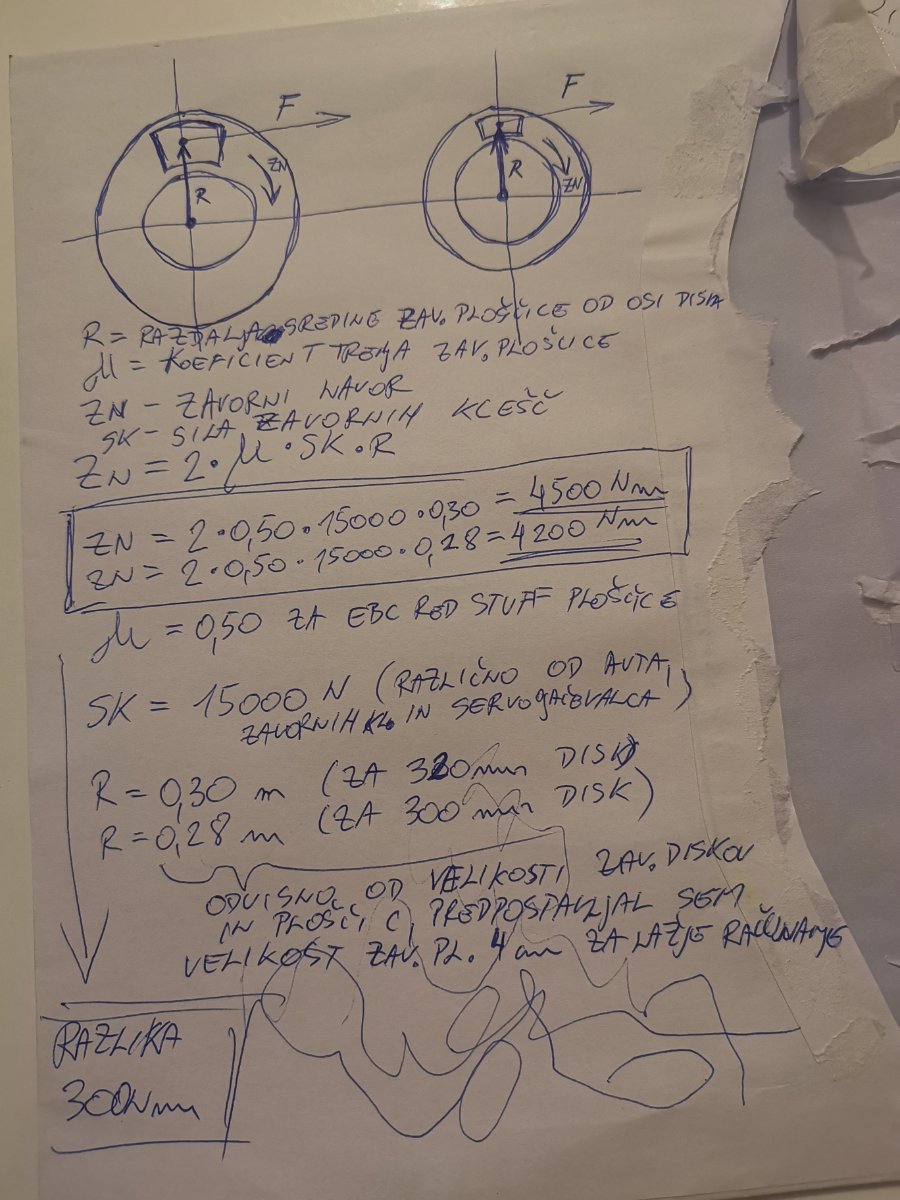 F
F
ZN
R
R
ZN
R = RAZDALJA SREDINE ZAV. PLOŠČICE OD OSI DISKA
μ = KOEFICIENT TRENJA ZAV. PLOŠČICE
ZN – ZAVORNI NAVOR
SK – SILA ZAVORNIH KLEŠČ
ZN = 2 · μ · SK · R
ZN = 2 · 0,50 · 15000 · 0,30 = 4500 Nm
ZN = 2 · 0,50 · 15000 · 0,28 = 4200 Nm
μ = 0,50 ZA EBC RED STUFF PLOŠČICE
SK = 15000 N (RAZLIČNO OD AVTA,
ZAVORNIH KL. IN SERVOOJAČEVALCA)
R = 0,30 m (ZA 320mm DISK)
R = 0,28 m (ZA 300 mm DISK)
ODVISNO OD VELIKOSTI ZAV. DISKOV
IN PLOŠČIC, PREDPOSTAVLJAL SEM
VELIKOST ZAV. PL. 4 cm ZA LAŽJE RAČUNANJE
RAZLIKA
300Nm